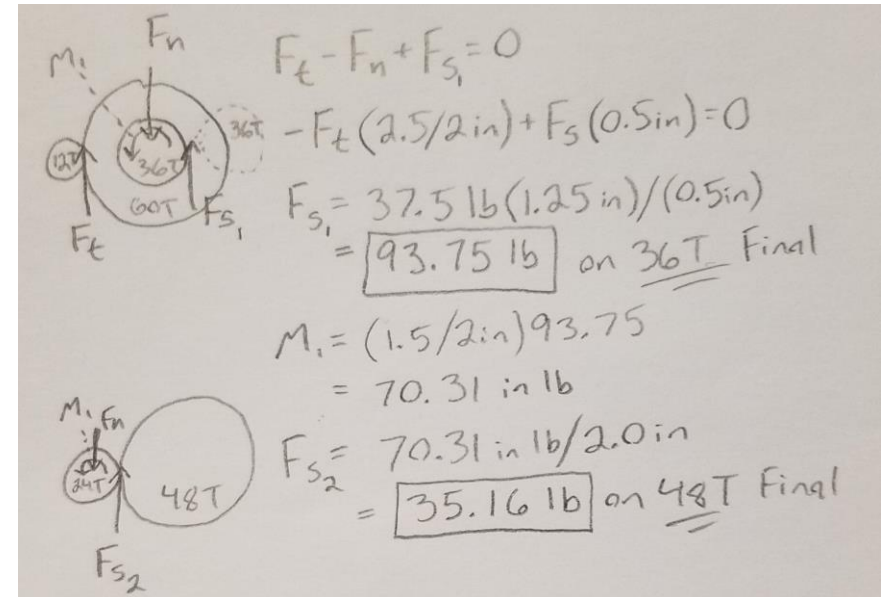 Fn
M₁
12T
36T
36T
60T
Ft
Fs₁
Ft - Fn + Fs₁ = 0
-Ft (2.5/2in) + Fs (0.5in) = 0
Fs₁ = 37.5 lb (1.25 in)/(0.5in)
= 93.75 lb on 36T Final
M₁ = (1.5/2in) 93.75
= 70.31 in lb
M₁ Fn
24T
48T
Fs₂
Fs₂ = 70.31 in lb/2.0 in
= 35.16 lb on 48T Final